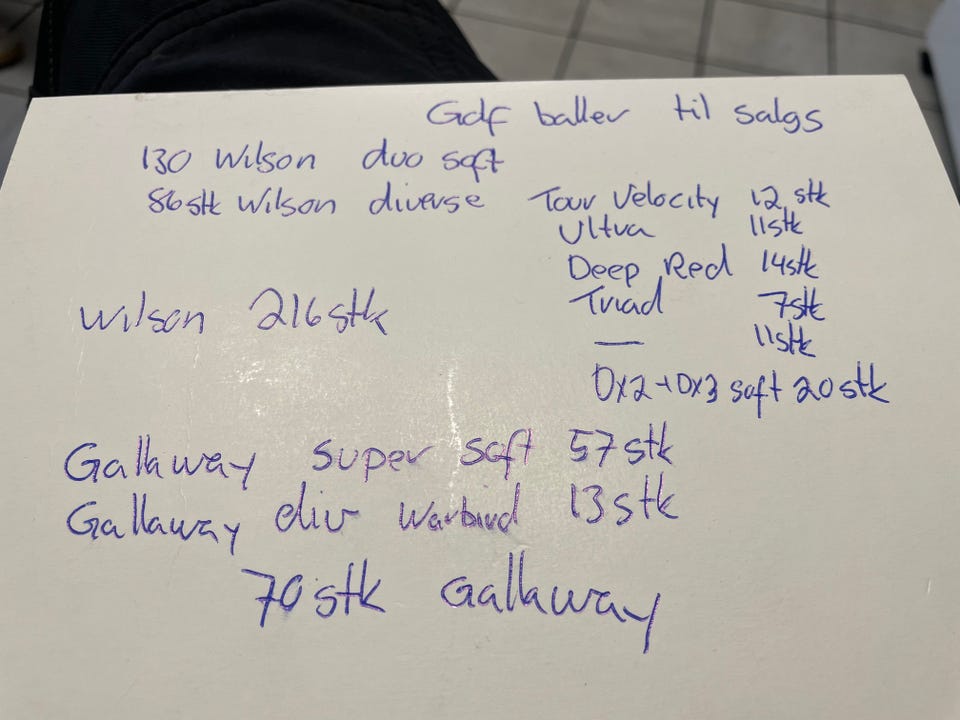 Golf baller til salgs
130 Wilson duo soft
86 stk Wilson diverse Tour Velocity 12 stk
Ultra 11 stk
Deep Red 14 stk
Wilson 216 stk
Triad 7 stk
— 11 stk
Dx2 + Dx3 soft 20 stk
Gallaway super soft 57 stk
Gallaway div Warbird 13 stk
70 stk Gallaway